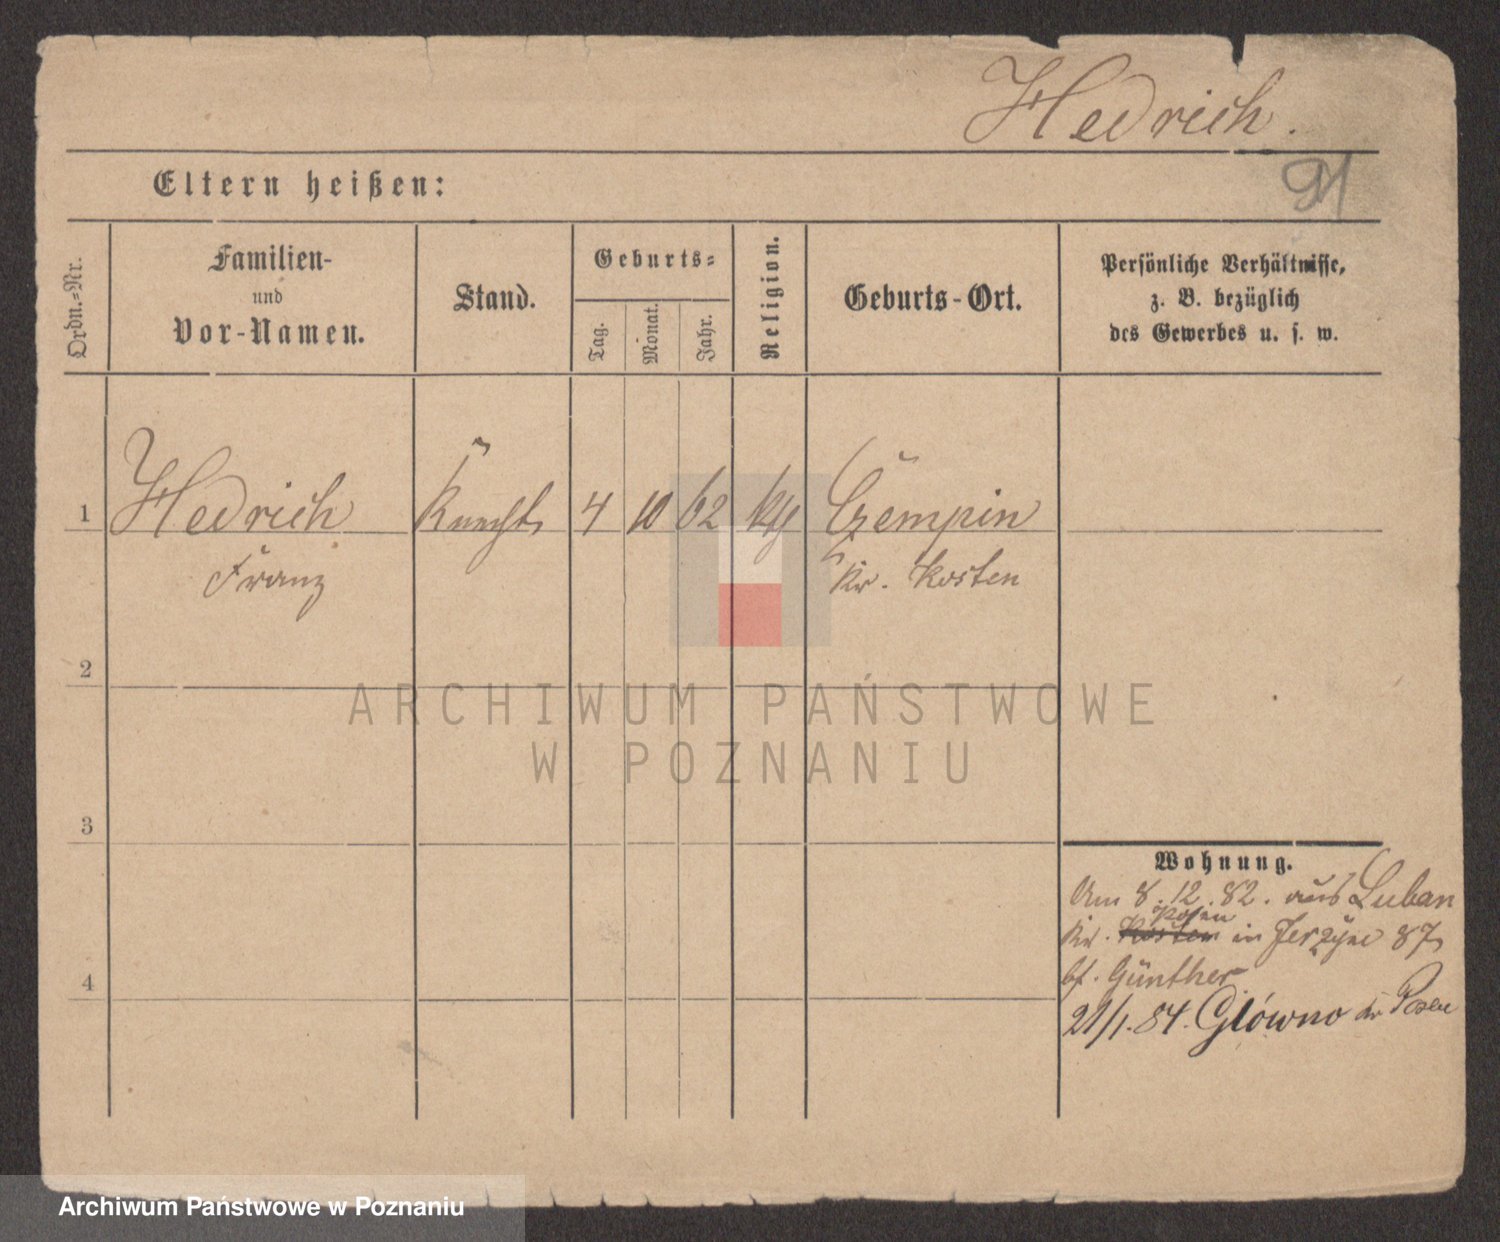 Hedrich.
91
Eltern heißen:
Ordn.=Nr.
Familien-
und
Vor-Namen.
Stand.
Geburts=
Tag.
Monat.
Jahr.
Religion.
Geburts-Ort.
Persönliche Verhältnisse,
z. B. bezüglich
des Gewerbes u. s. w.
1 Hedrich Knecht 4 10 62 kth Czempin
Franz Kr. Kosten
2
ARCHIWUM PAŃSTWOWE
W POZNANIU
3
Wohnung.
Am 8.12.82. aus Luban
Posen
Kr. Kosten in Jerzyce 87
bf. Günther
21/1.84. Główno Kr Posen
4
Archiwum Państwowe w Poznaniu